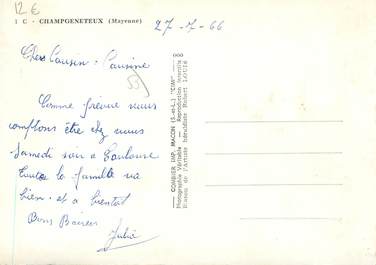 12 €
1 C - CHAMPGENETEUX (Mayenne)
27-7-66
Chers Cousin - Cousine
53
Comme prévue nous
comptons être chez nous
Samedi soir à Toulouse
toute la famille va
bien - et a bientot
Bons Baisers
Julia
COMBIER IMP. MACON (S.-et-L.) "CIM"
Photographie Véritable - Reproduction interdite
Blason de l'Artiste héraldiste Robert LOUIS